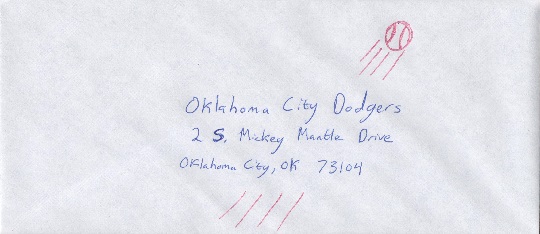 Oklahoma City Dodgers
2 S. Mickey Mantle Drive
Oklahoma City, OK 73104